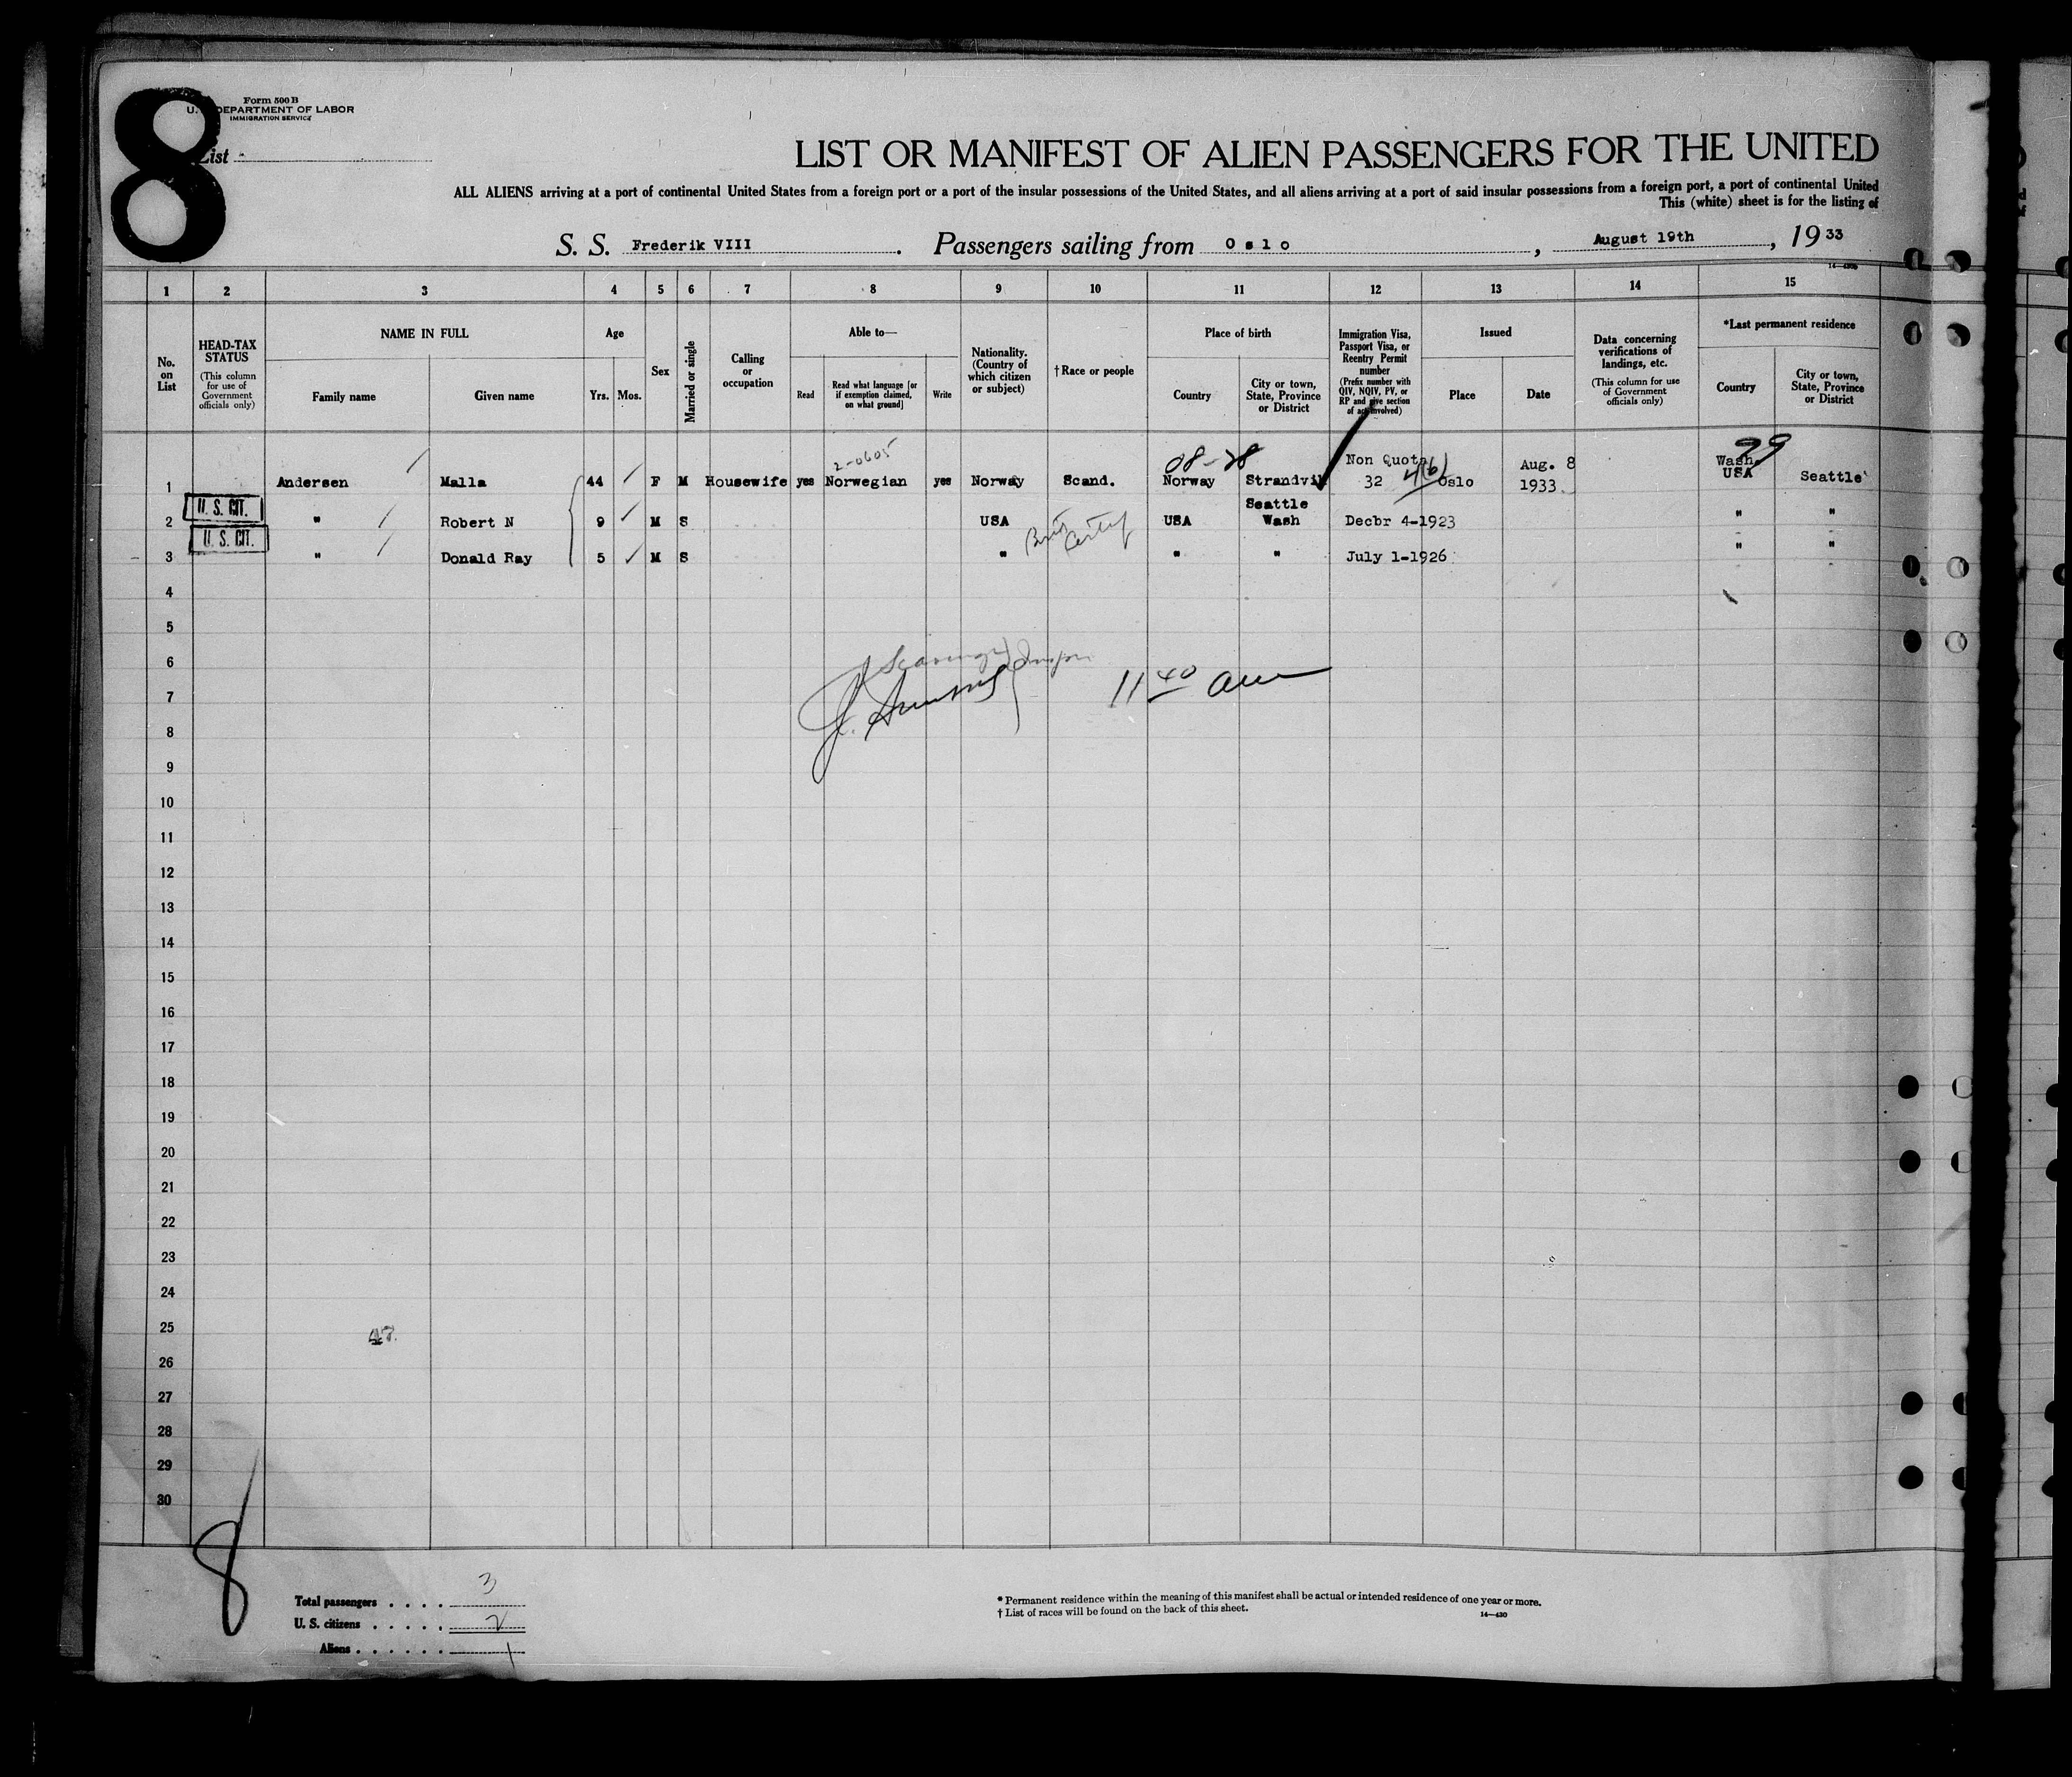 8
Form 500 B
U. DEPARTMENT OF LABOR
IMMIGRATION SERVICE
List
LIST OR MANIFEST OF ALIEN PASSENGERS FOR THE UNITED
ALL ALIENS arriving at a port of continental United States from a foreign port or a port of the insular possessions of the United States, and all aliens arriving at a port of said insular possessions from a foreign port, a port of continental United
This (white) sheet is for the listing of
S. S. Frederik VIII. Passengers sailing from Oslo, August 19th, 1933
1 2 3 4 5 6 7 8 9 10 11 12 13 14 15
No. on List
HEAD-TAX STATUS
(This column for use of Government officials only)
NAME IN FULL
Family name Given name
Age
Yrs. Mos.
Sex
Married or single
Calling or occupation
Able to—
Read Read what language [or if exemption claimed, on what ground] Write
Nationality. (Country of which citizen or subject)
†Race or people
Place of birth
Country City or town, State, Province or District
Immigration Visa, Passport Visa, or Reentry Permit number
(Prefix number with QIV, NQIV, PV, or RP and give section of act involved)
Issued
Place Date
Data concerning verifications of landings, etc.
(This column for use of Government officials only)
*Last permanent residence
Country City or town, State, Province or District
2-0605 08-28 29
1 Andersen Malla 44 F M Housewife yes Norwegian yes Norway Scand. Norway Strandvik Non Quota 32 4(b) Oslo Aug. 8 1933 Wash. USA Seattle
U. S. CIT.
2 " Robert N 9 M S USA USA Seattle Wash Decbr 4-1923 " "
U. S. CIT.
3 " Donald Ray 5 M S " " " July 1-1926 " "
4
5
6
7 11 40 am
8
9
10
11
12
13
14
15
16
17
18
19
20
21
22
23
24
25 47.
26
27
28
29
30
8
Total passengers . . . . 3
U. S. citizens . . . . . 2
Aliens . . . . . . 1
* Permanent residence within the meaning of this manifest shall be actual or intended residence of one year or more.
† List of races will be found on the back of this sheet.
14—430